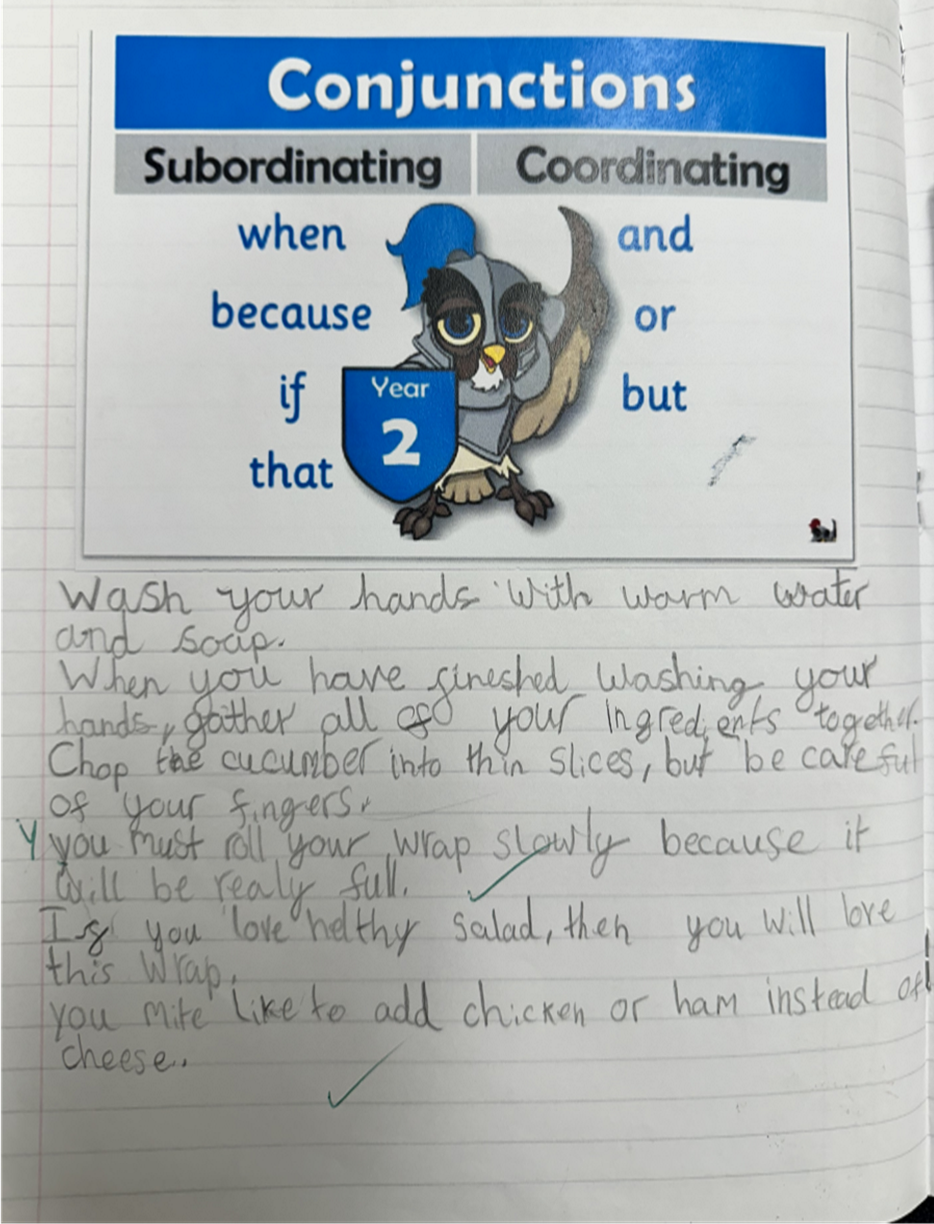 Conjunctions
Subordinating Coordinating
when and
because or
if but
that
Year
2
Wash your hands with warm water
and soap.
When you have fineshed washing your
hands, gather all of your ingredients together.
Chop the cucumber into thin slices, but be careful
of your fingers.
Y you must roll your wrap slowly because it
will be realy full.
If you love helthy salad, then you will love
this wrap.
you mite like to add chicken or ham instead of
cheese.